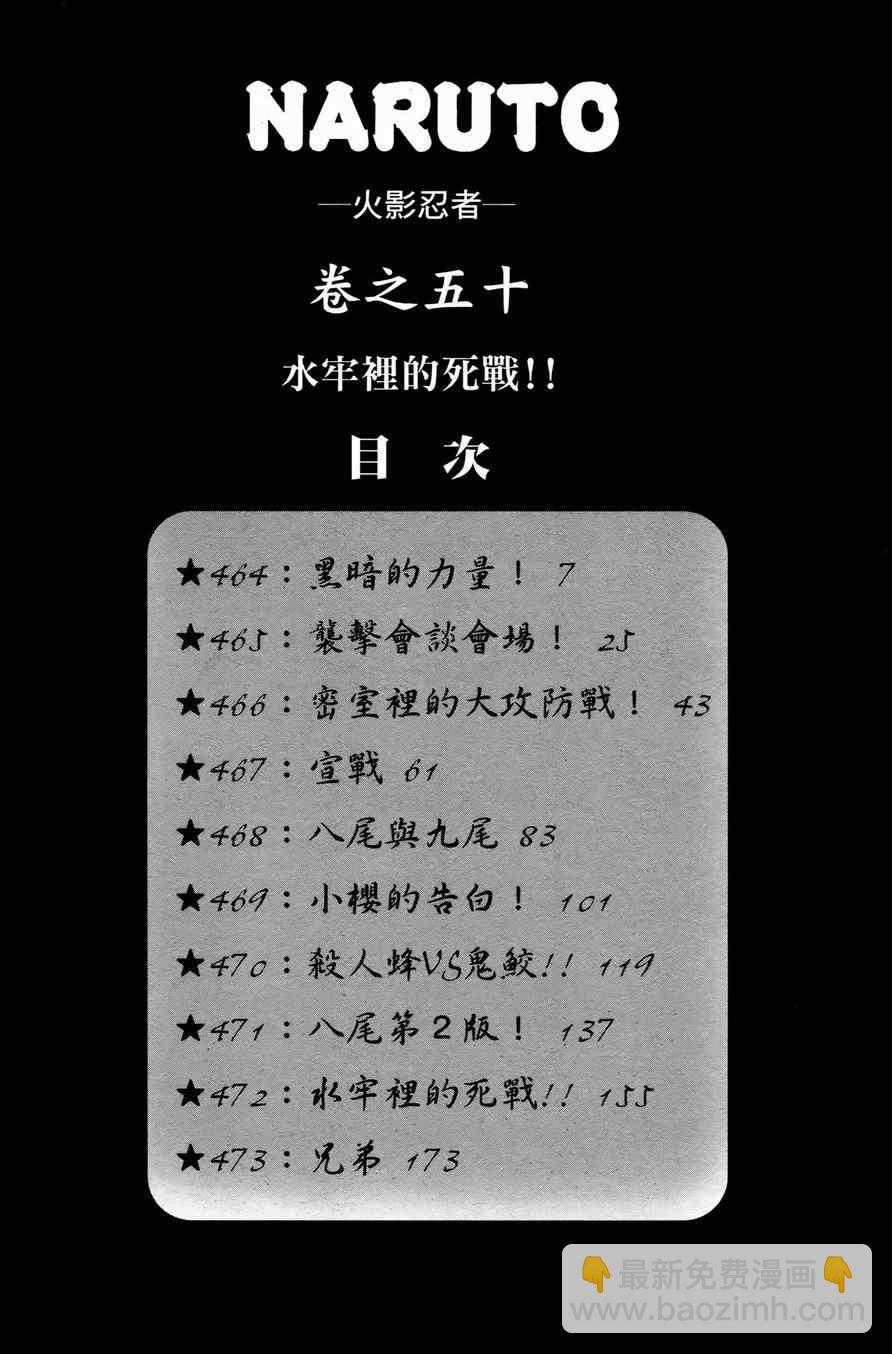 NARUTO
—火影忍者—
卷之五十
水牢裡的死戰!!
目 次
★464：黑暗的力量！ 7
★465：襲擊會談會場！ 25
★466：密室裡的大攻防戰！ 43
★467：宣戰 61
★468：八尾與九尾 83
★469：小櫻的告白！ 101
★470：殺人蜂VS鬼鮫!! 119
★471：八尾第2版！ 137
★472：水牢裡的死戰!! 155
★473：兄弟 173
👇最新免费漫画👇
www.baozimh.com